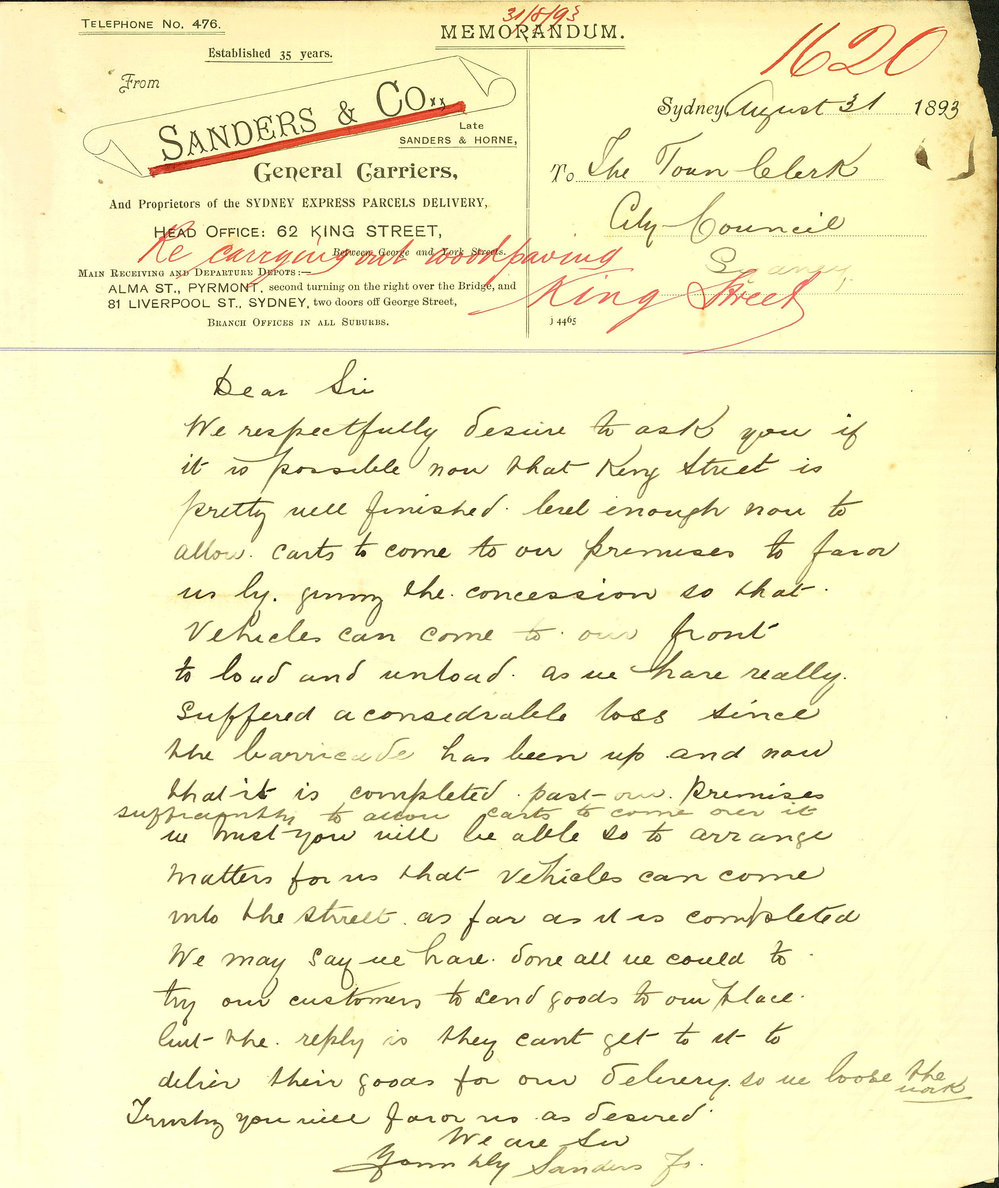 TELEPHONE No. 476.
31/8/93
MEMORANDUM.
1620
Established 35 years.
From
SANDERS & Co.,
Late
SANDERS & HORNE,
General Carriers,
And Proprietors of the SYDNEY EXPRESS PARCELS DELIVERY,
HEAD OFFICE: 62 KING STREET,
Between George and York Streets.
MAIN RECEIVING AND DEPARTURE DEPOTS:—
ALMA ST., PYRMONT, second turning on the right over the Bridge, and
81 LIVERPOOL ST., SYDNEY, two doors off George Street,
BRANCH OFFICES IN ALL SUBURBS.
Sydney, August 31 1893
To The Town Clerk
City Council
Sydney
Re carrying out woodpaving
King Street
J 4465
Dear Sir
We respectfully desire to ask you if
it is possible now that King Street is
pretty well finished. level enough now to
allow. carts to come to our premises to favor
us by. giving the concession so that.
Vehicles can come to our front
to load and unload. as we have really.
suffered a consedrable loss since
the barricade has been up and now
that it is completed past our Premises
sufficiently to allow carts to come over it
we trust you will be able so to arrange
matters for us that Vehicles can come
into the street. as far as it is completed
We may say we have. done all we could to.
try our customers to send goods to our place.
but the. reply is they cant get to it to
deliver their goods for our delivery. so we loose the
work
Trusting you will favor us as desired.
We are Sir
Sanders